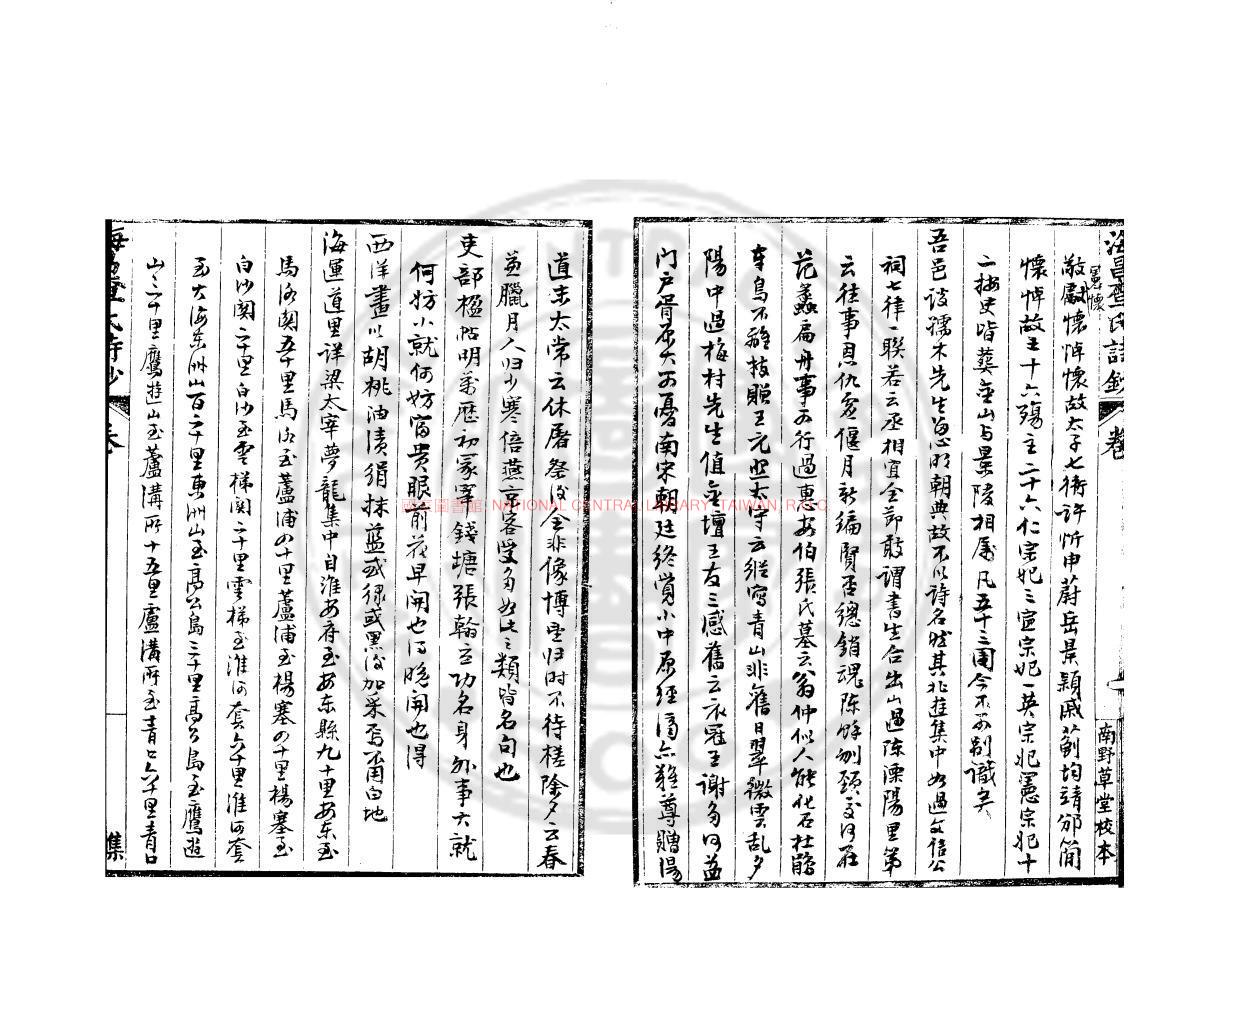 海昌查氏詩鈔 卷
南野草堂校本
獻懷悼懷故太子七衞許忻申蔚岳景穎戚薊均靖邠簡
憲懷
懷悼故王十六殤主二十六仁宗妃三宣宗妃一英宗妃憲宗妃十
二按史皆葬金山与景陵相屬凡五十三園今不可別識矣
吾邑談孺木先生熟明朝典故不以詩名然其北遊集中如過文信公
祠七律一聯若云丞相宜全節敢謂書生合出山過陳溧陽里第
云往事恩仇迷偃月新編賢否總銷魂陳餘刎頸交何在
范蠡扁舟事可行過惠安伯張氏墓云翁仲似人能化石杜鵑
車烏不離枝贈王元照太守云縱寫青山非舊日翠微雲亂夕
陽中過梅村先生值金壇王友三感舊云衣冠王謝多何益
門戶胥原大可憂南宋朝廷終覺小中原經濟亦難尊贈湯
道未太常云休屠祭後金非像博望归时不待槎除夕云春
前臘月人归少寒倍燕京客受多如此之類皆名句也
吏部楹帖明萬歷初冢宰錢塘張翰立功名身外事大就
何妨小就何妨富贵眼前花早開也得晚開也得
西洋畫以胡桃油漬絹抹藍或綠或黑後加采焉不用白地
海運道里详梁太宰夢龍集中自淮安府至安东縣九十里安东至
馬洛關五十里馬洛至蘆浦四十里蘆浦至楊寨四十里楊寨至
白沙關二十里白沙至雲梯關二十里雲梯至淮河套六十里淮河套
至大海东州山百二十里東州山至高公島三十里高公島至鷹遊
山三十里鷹遊山至蘆溝所十五里蘆溝所至青口六十里青口
海昌查氏詩鈔
卷
集
國家圖書館 NATIONAL CENTRAL LIBRARY, TAIWAN, R.O.C.